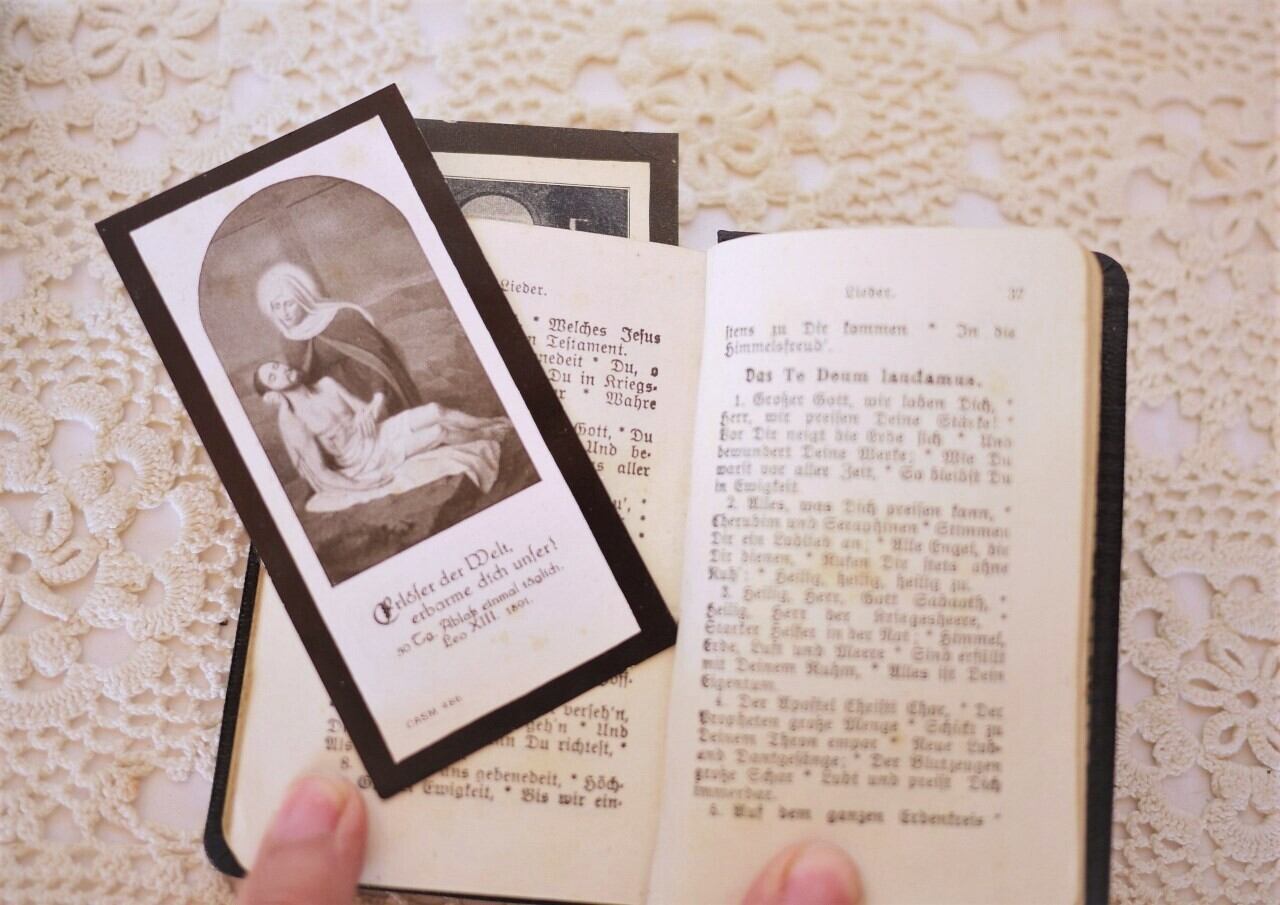 Erlöser der Welt,
erbarme dich unser!
50 Tg. Ablaß einmal täglich.
Leo XIII. 1891.
Lieder.
* Welches Jesus
Testament.
* Du, o
Du in Kriegs-
* Wahre
Gott, * Du
Und be-
aller
verseh'n,
geh'n * Und
Du richtest, *
8. uns gebenedeit, * Höch-
Ewigkeit, * Bis wir ein-
Lieder. 37
stens zu Dir kommen * In die
Himmelsfreud'.
Das Te Deum laudamus.
1. Großer Gott, wir loben Dich, *
Herr, wir preisen Deine Stärke! *
Vor Dir neigt die Erde sich * Und
bewundert Deine Werke; * Wie Du
warst vor aller Zeit, * So bleibst Du
in Ewigkeit.
2. Alles, was Dich preisen kann, *
Cherubim und Seraphinen * Stimmen
Dir ein Loblied an; * Alle Engel, die
Dir dienen, * Rufen Dir stets ohne
Ruh': * Heilig, heilig, heilig zu.
3. Heilig, Herr, Gott Sabaoth, *
Heilig, Herr der Kriegesheere,
Starker Helfer in der Not; * Himmel,
Erde, Luft und Meere * Sind erfüllt
mit Deinem Ruhm, * Alles ist Dein
Eigentum.
4. Der Apostel Christi Chor, * Der
Propheten große Menge * Schickt zu
Deinem Thron empor * Neue Lob-
und Dankgesänge; * Der Blutzeugen
große Schar * Lobt und preist Dich
immerdar.
5. Auf dem ganzen Erdenkreis *